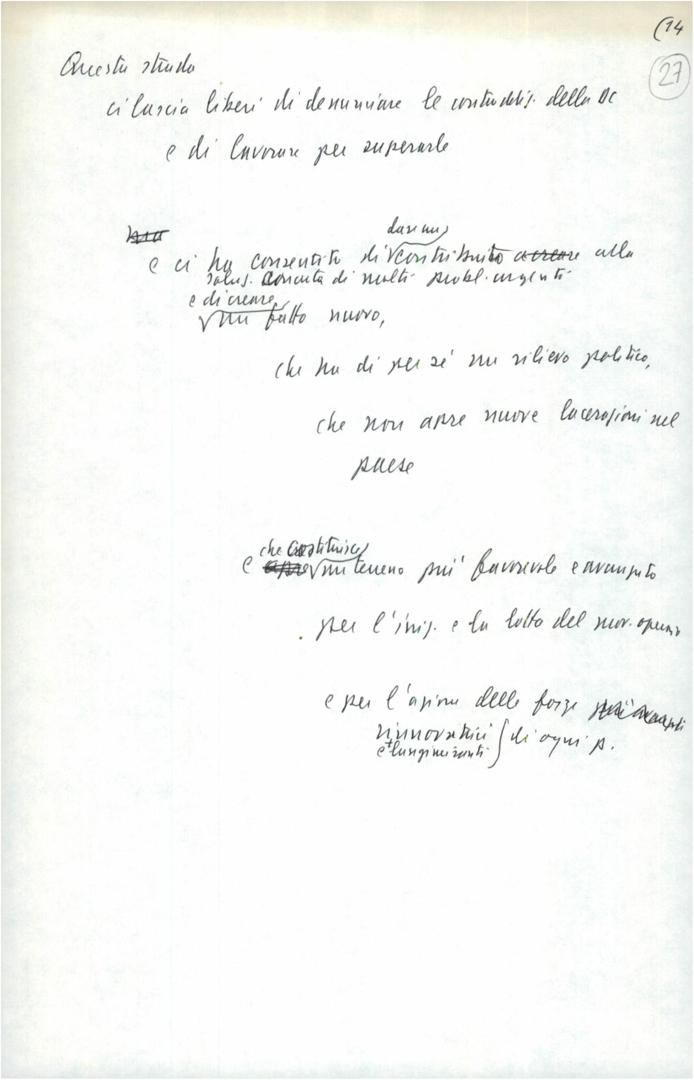 (14
27
Questa strada
ci lascia liberi di denunciare le contraddiz. della DC
e di lavorare per superarle
ha
dare un
e ci ha consentito di contributo a creare alla
soluz. concreta di molti probl. urgenti
e di creare
un fatto nuovo,
che ha di per sé un rilievo politico,
che non apre nuove lacerazioni nel
paese
che costituisce
e apre un terreno più favorevole e avanzato
per l'iniz. e la lotta del mov. operaio
e per l'azione delle forze più avanzate
rinnovatrici
e lungimiranti di ogni p.